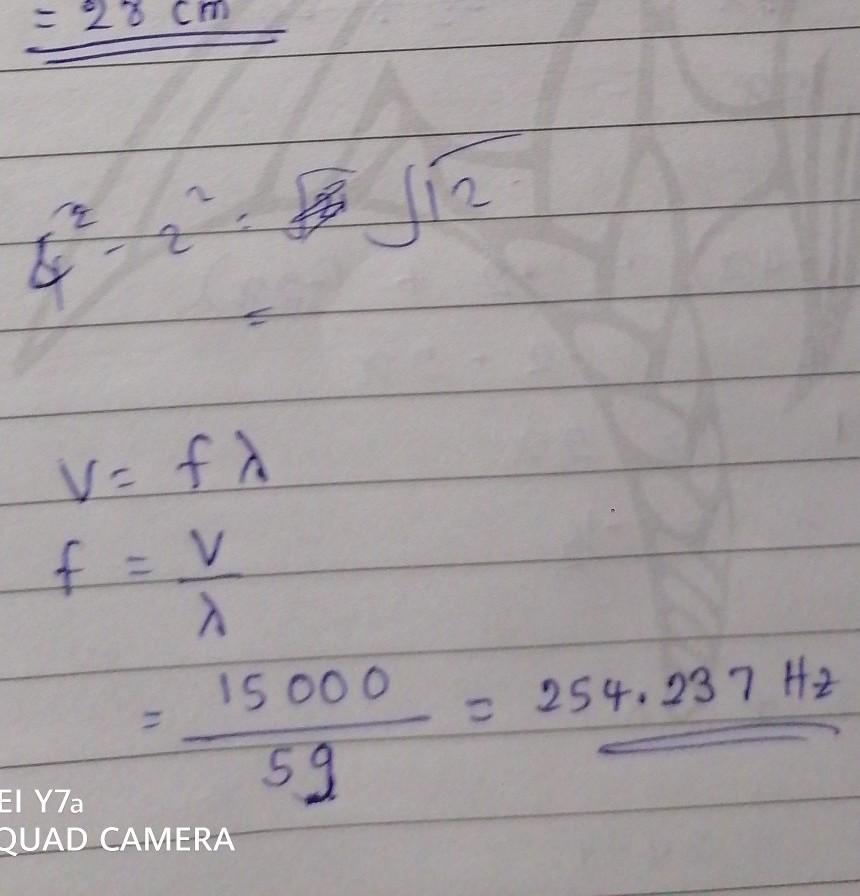 = 28 cm
4² - 2² = √12
=
V = fλ
f = V/λ
= 15000/59 = 254.237 Hz
EI Y7a
QUAD CAMERA